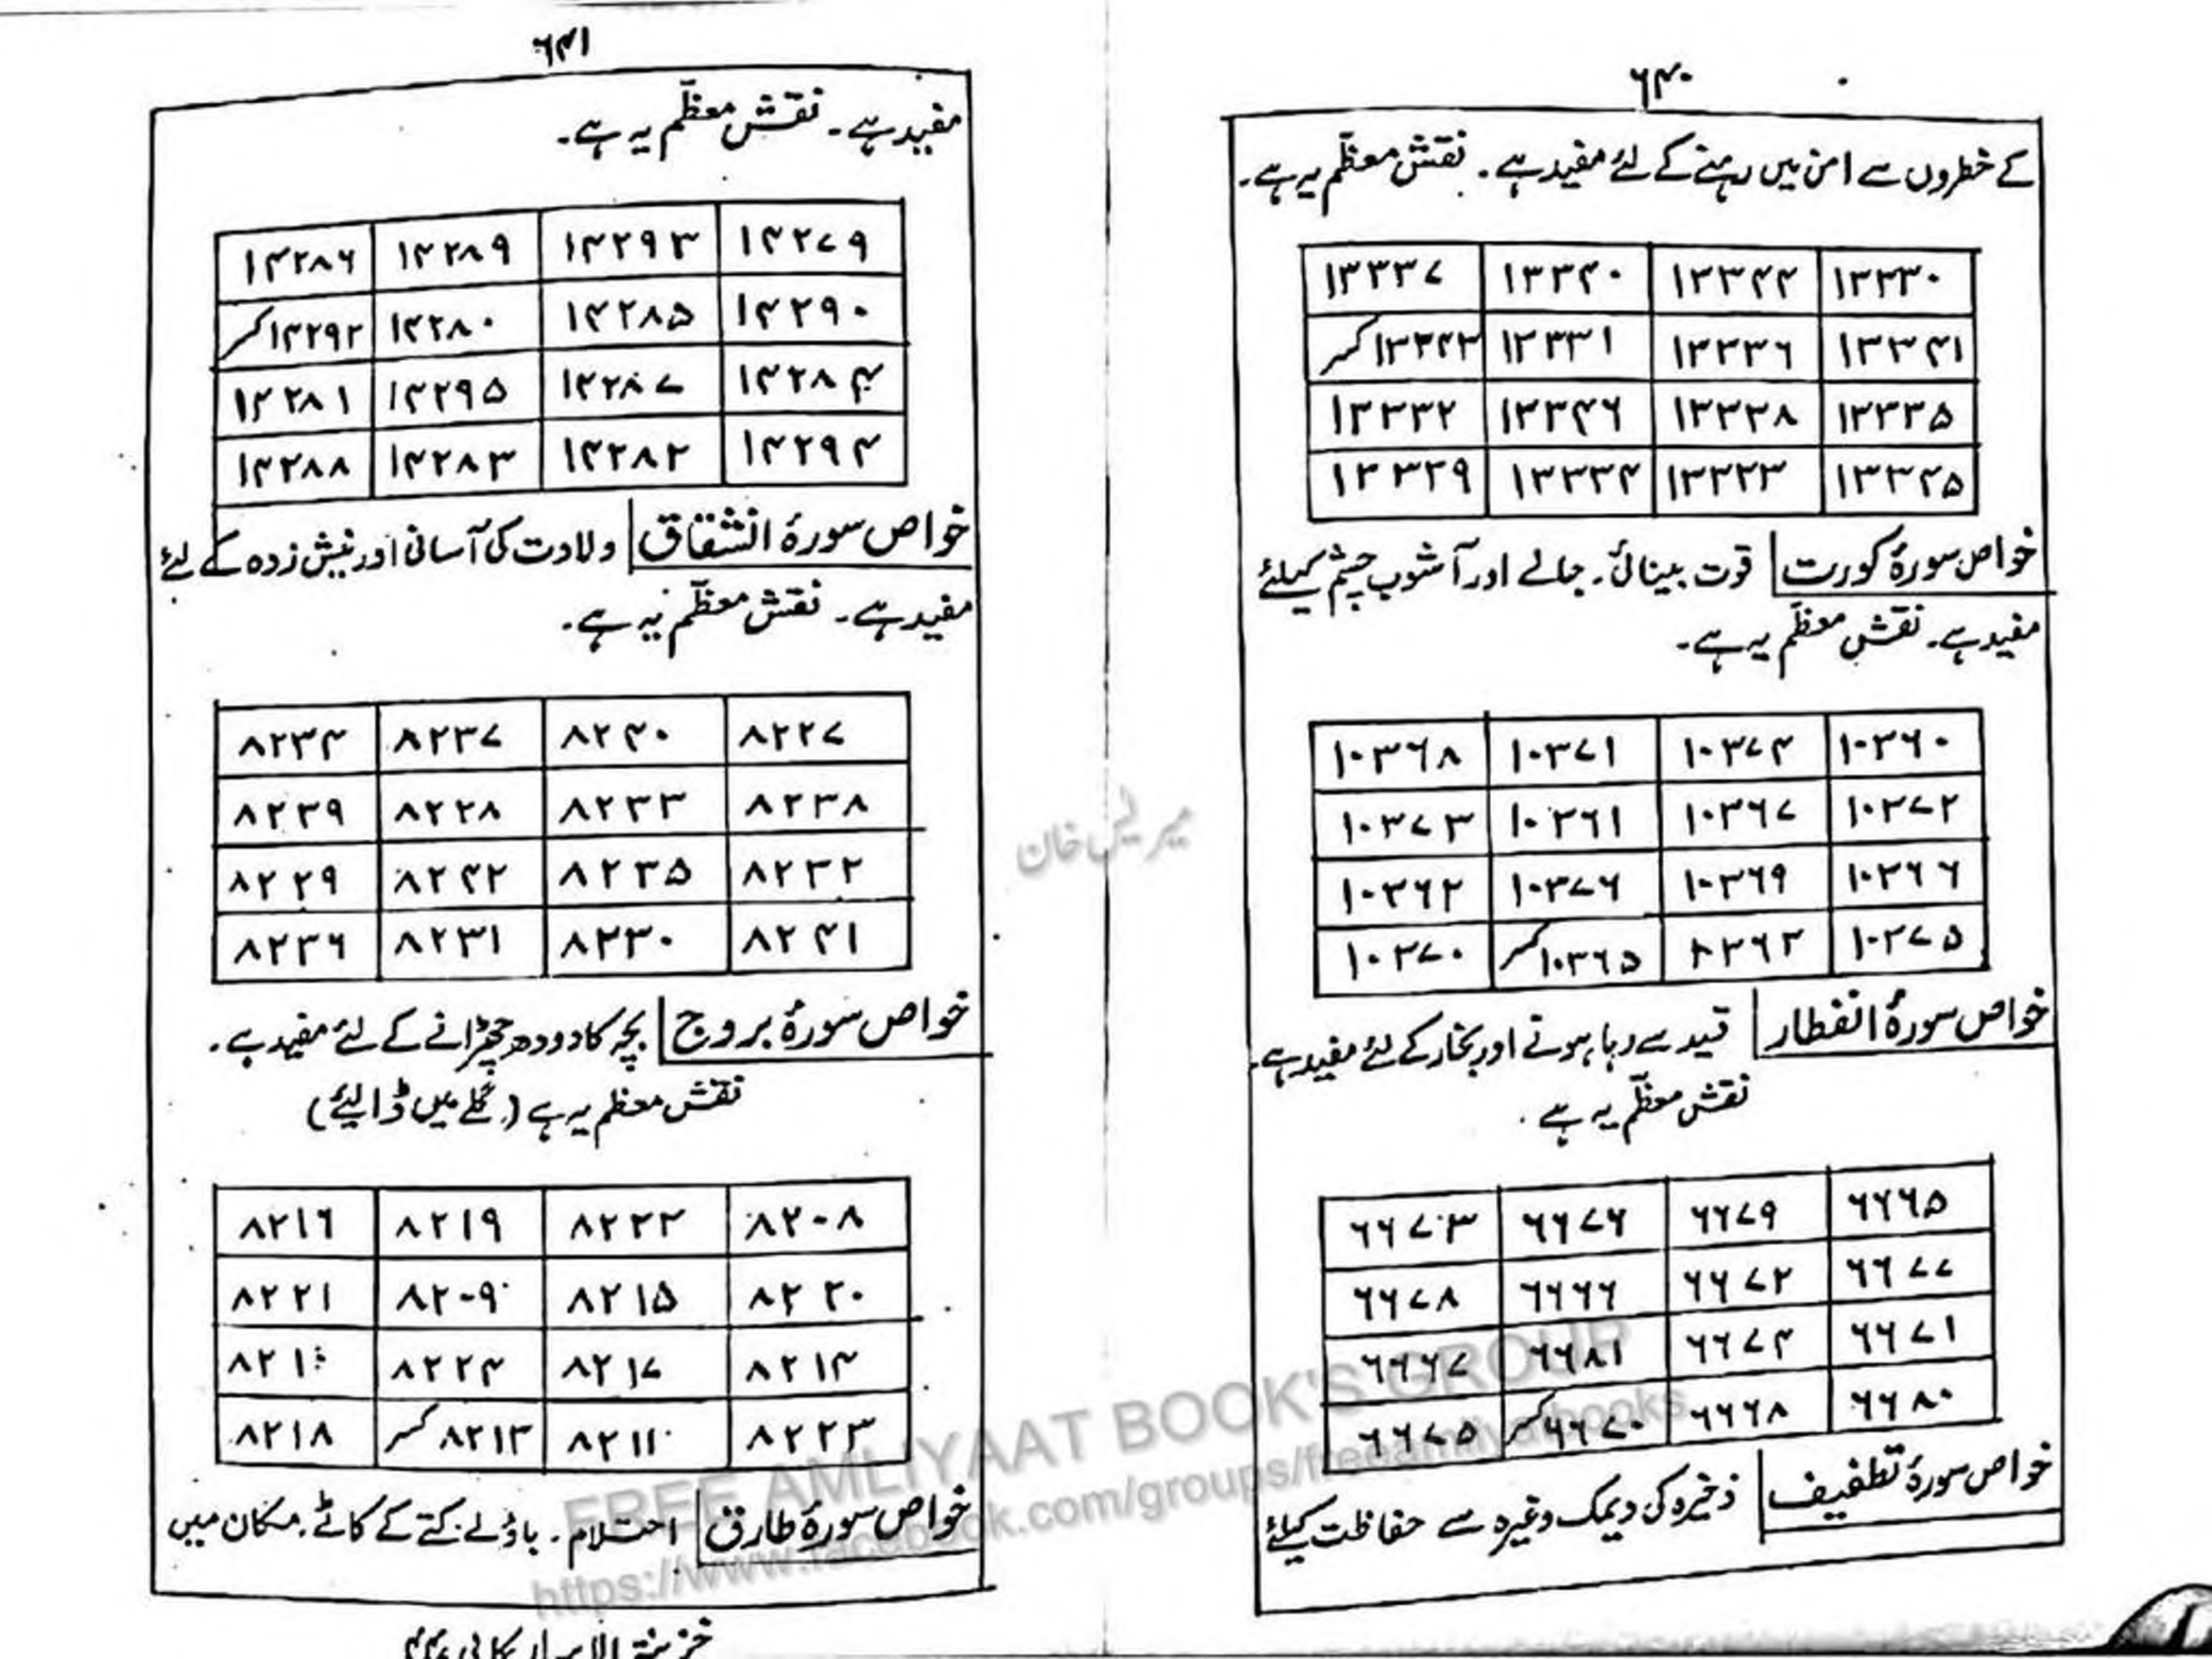 ۶۴۰
کے خطروں سے امن میں رہنے کے لئے مفید ہے۔ نقش معظّم یہ ہے۔
۱۳۳۳۷ ۱۳۳۴۰ ۱۳۳۴۴ ۱۳۳۳۰
۱۳۳۴۳ کسر ۱۳۳۳۱ ۱۳۳۳۶ ۱۳۳۴۱
۱۳۳۳۲ ۱۳۳۴۶ ۱۳۳۳۸ ۱۳۳۳۵
۱۳۳۳۹ ۱۳۳۳۴ ۱۳۳۳۳ ۱۳۳۴۵
خواص سورۂ کورت قوت بینائی۔ جالے اور آشوب چشم کیلئے
مفید ہے۔ نقش معظّم یہ ہے۔
۱۰۳۶۸ ۱۰۳۷۱ ۱۰۳۷۴ ۱۰۳۶۰
۱۰۳۷۳ ۱۰۳۶۱ ۱۰۳۶۷ ۱۰۳۷۲
۱۰۳۶۲ ۱۰۳۷۶ ۱۰۳۶۹ ۱۰۳۶۶
۱۰۳۷۰ ۱۰۳۶۵ کسر ۱۰۳۶۳ ۱۰۳۷۵
خواص سورۂ انفطار قید سے رہا ہونے اور بخار کے لئے مفید ہے۔
نقش معظّم یہ ہے۔
۶۶۷۳ ۶۶۷۶ ۶۶۷۹ ۶۶۶۵
۶۶۷۸ ۶۶۶۶ ۶۶۷۲ ۶۶۷۷
۶۶۶۷ ۶۶۸۱ ۶۶۷۴ ۶۶۷۱
۶۶۷۵ ۶۶۷۰ کسر ۶۶۶۸ ۶۶۸۰
خواص سورۂ تطفیف ذخیرہ کی دیمک وغیرہ سے حفاظت کیلئے
۶۴۱
مفید ہے۔ نقش معظّم یہ ہے۔
۱۴۲۸۶ ۱۴۲۸۹ ۱۴۲۹۳ ۱۴۲۷۹
۱۴۲۹۲ کسر ۱۴۲۸۰ ۱۴۲۸۵ ۱۴۲۹۰
۱۴۲۸۱ ۱۴۲۹۵ ۱۴۲۸۷ ۱۴۲۸۴
۱۴۲۸۸ ۱۴۲۸۳ ۱۴۲۸۲ ۱۴۲۹۴
خواص سورۂ انشقاق ولادت کی آسانی اور نیش زدہ کے لئے
مفید ہے۔ نقش معظّم یہ ہے۔
۸۲۳۴ ۸۲۳۷ ۸۲۴۰ ۸۲۲۷
۸۲۳۹ ۸۲۲۸ ۸۲۳۳ ۸۲۳۸
۸۲۲۹ ۸۲۴۲ ۸۲۳۵ ۸۲۳۲
۸۲۳۶ ۸۲۳۱ ۸۲۳۰ ۸۲۴۱
خواص سورۂ بروج بچہ کا دودھ چھڑانے کے لئے مفید ہے۔
نقش معظم یہ ہے (گلے میں ڈالیئے)
۸۲۱۶ ۸۲۱۹ ۸۲۲۲ ۸۲۰۸
۸۲۲۱ ۸۲۰۹ ۸۲۱۵ ۸۲۲۰
۸۲۱۰ ۸۲۲۴ ۸۲۱۷ ۸۲۱۴
۸۲۱۸ ۸۲۱۳ کسر ۸۲۱۱ ۸۲۲۳
خواص سورۂ طارق احتلام۔ باؤلے کتے کے کاٹے۔ مکان میں
FREE AMLIYAAT BOOK'S GROUP
https://www.facebook.com/groups/freeamliyatbooks